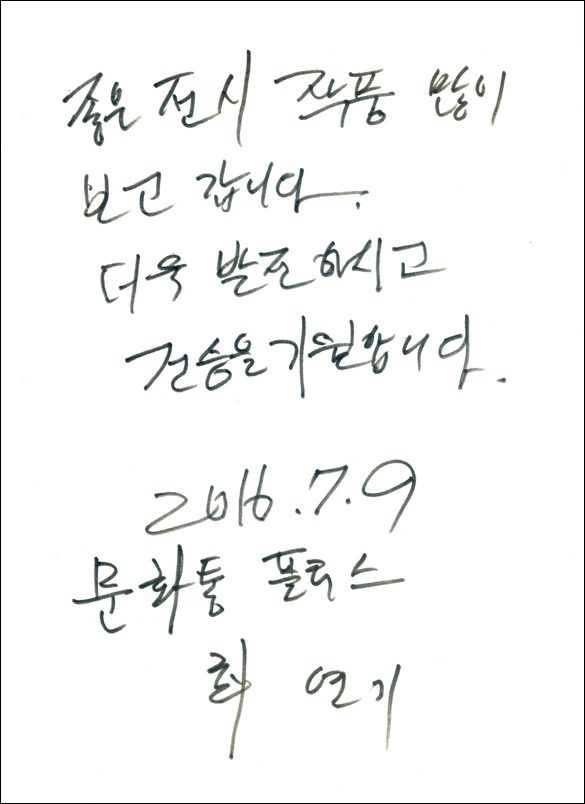 좋은 전시 작품 많이
보고 갑니다.
더욱 발전하시고
건승을 기원합니다.
2016.7.9
문화통 플러스
최 연기